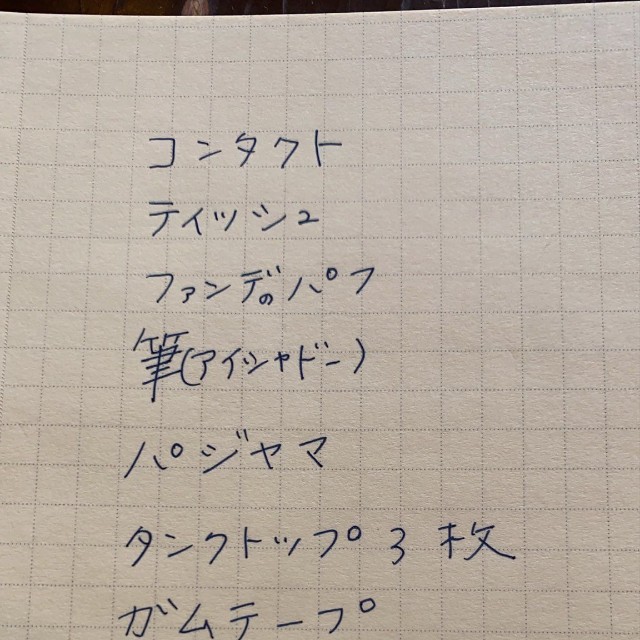 コンタクト
ティッシュ
ファンデのパフ
筆(アイシャドー)
パジャマ
タンクトップ3枚
ガムテープ